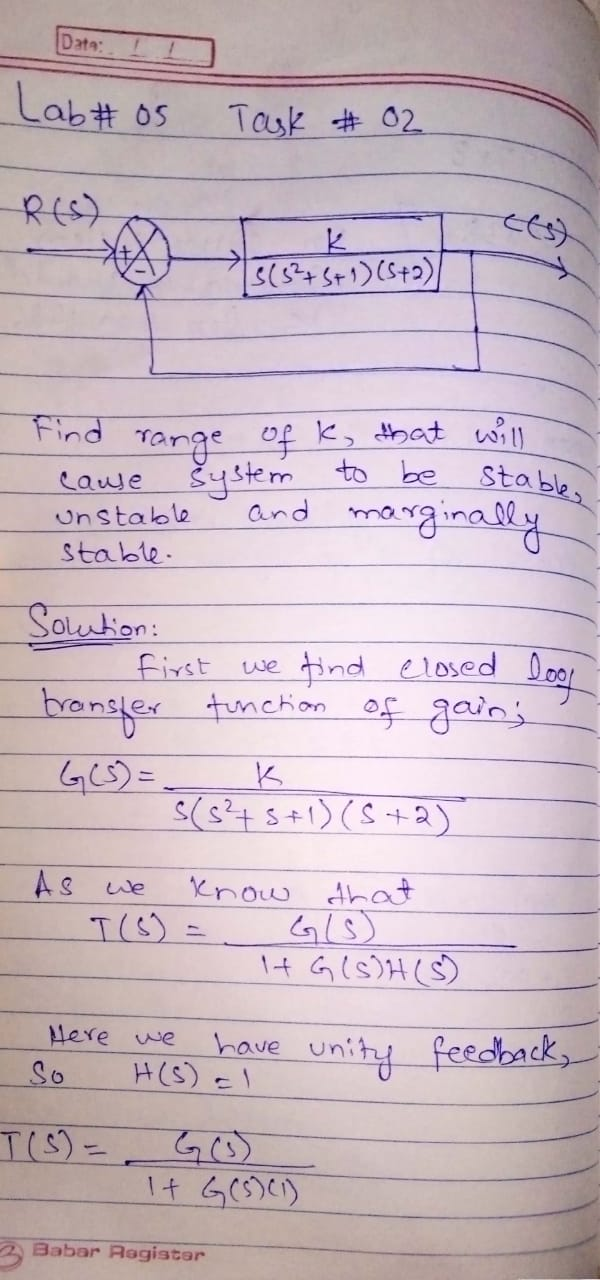 Date: / /
Lab# 05 Task # 02
R(S) C(S)
+ K
- S(S²+S+1)(S+2)
Find range of K, that will
cause system to be stable,
unstable and marginally
stable.
Solution:
First we find closed loop
transfer function of gain;
G(S) = K
S(S²+S+1)(S+2)
As we know that
T(S) = G(S)
1+ G(S)H(S)
Here we have unity feedback,
So H(S) = 1
T(S) = G(S)
1+ G(S)(1)
Babar Register